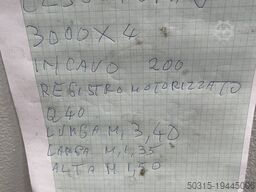 3000 X 4
INCAVO 200
REGISTRO MOTORIZZATO
Q 40
LUNGA M, 3,40
LARGA M, 1,35
ALTA M 1,50
50315-19445006